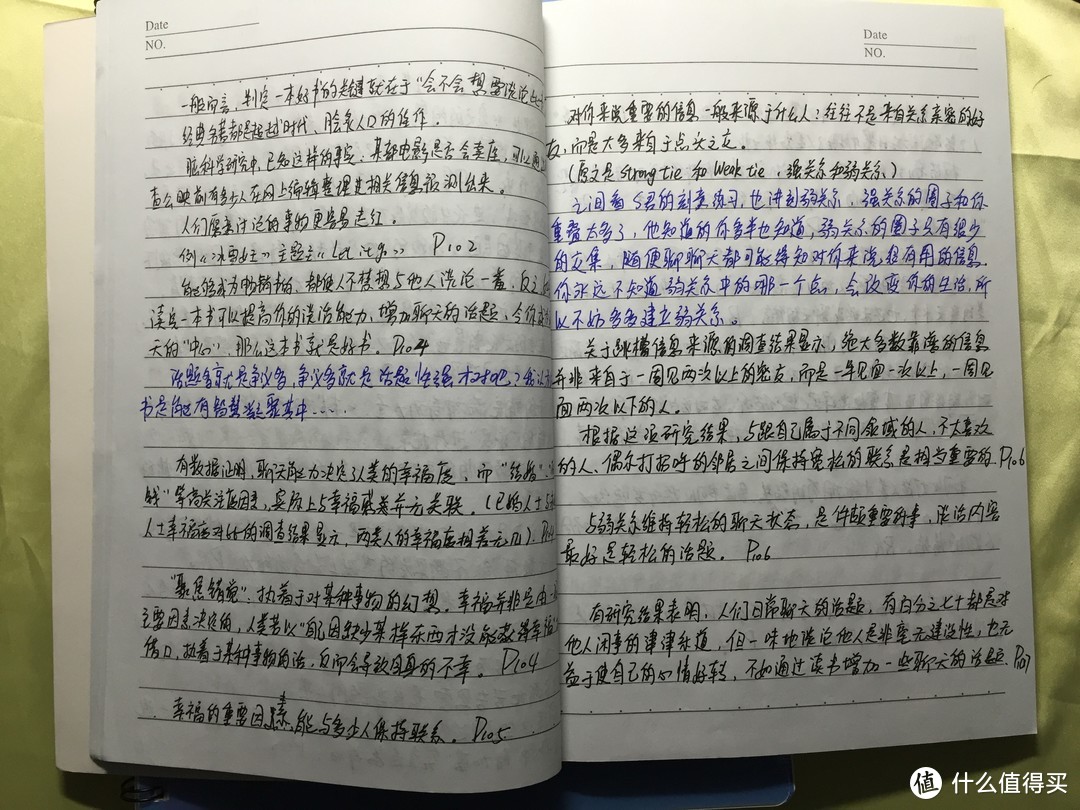 Date
NO.
一般而言，判定一本好书的关键就在于“会不会想要谈论
经典名著都是超越时代、脍炙人口的佳作。
脑科学研究中，已知这样的事实：某部电影是否会卖座，可以通
在上映前有多少人在网上编辑整理其相关信息被测出来。
人们愿意讨论的事物更容易走红。
例《冰雪女王》主题之《Let it go》 P102
能够成为畅销书的，都使人不禁想与他人谈论一番，反之
读完一本书可以提高你的谈话能力，增加聊天的话题，令你成
天的“中心”，那么这本书就是好书。P104
话题多就是争议多，争议多就是话题性强才对吧？我认
书是能有智慧凝聚其中.....
有数据证明，聊天能力决定人类的幸福度，而“结婚”
钱”等高关注度因素，实际上与幸福感差并无关联。（已婚人士与
人士幸福度对比的调查结果显示，两类人的幸福度相差无几）。P104
“聚焦错觉”：执着于对某种事物的幻想，幸福并非是由一
主要因素决定的，人类若以“自己因缺少某样东西才没能获得幸福”
借口，执着于某种事物的话，反而会导致自身的不幸。P104
幸福的重要因素，能与多少人保持联系。P105
Date
NO.
对你来说重要的信息一般来源于什么人？往往不是来自关系亲密的好
友，而是大多来自于点头之交。
（原文是 strong tie 和 Weak tie，强关系和弱关系）
之间看S君的刻意练习，也讲到弱关系，强关系的圈子和你
重叠太多了，他知道的你多半也知道，弱关系的圈子只有很少
的交集，随便聊聊天都可能得知对你来说很有用的信息。
你永远不知道弱关系中的哪一个点，会改变你的生活，所
以不妨多多建立弱关系。
关于跳槽信息来源的调查结果显示，绝大多数靠谱的信息
并非来自于一周见两次以上的密友，而是一年见面一次以上，一周见
面两次以下的人。
根据这项研究结果，与跟自己属于不同领域的人、不太喜欢
的人、偶尔打招呼的邻居之间保持宽松的联系是相当重要的。P106
与弱关系维持轻松的聊天状态，是件颇重要的事，谈话内容
最好是轻松的话题。P106
有研究结果表明，人们日常聊天的话题，有百分之七十都是对
他人闲事的津津乐道，但一味地谈论他人是非毫无建设性，也无
益于使自己的心情好转，不如通过读书增加一些聊天的话题。P107
值 什么值得买